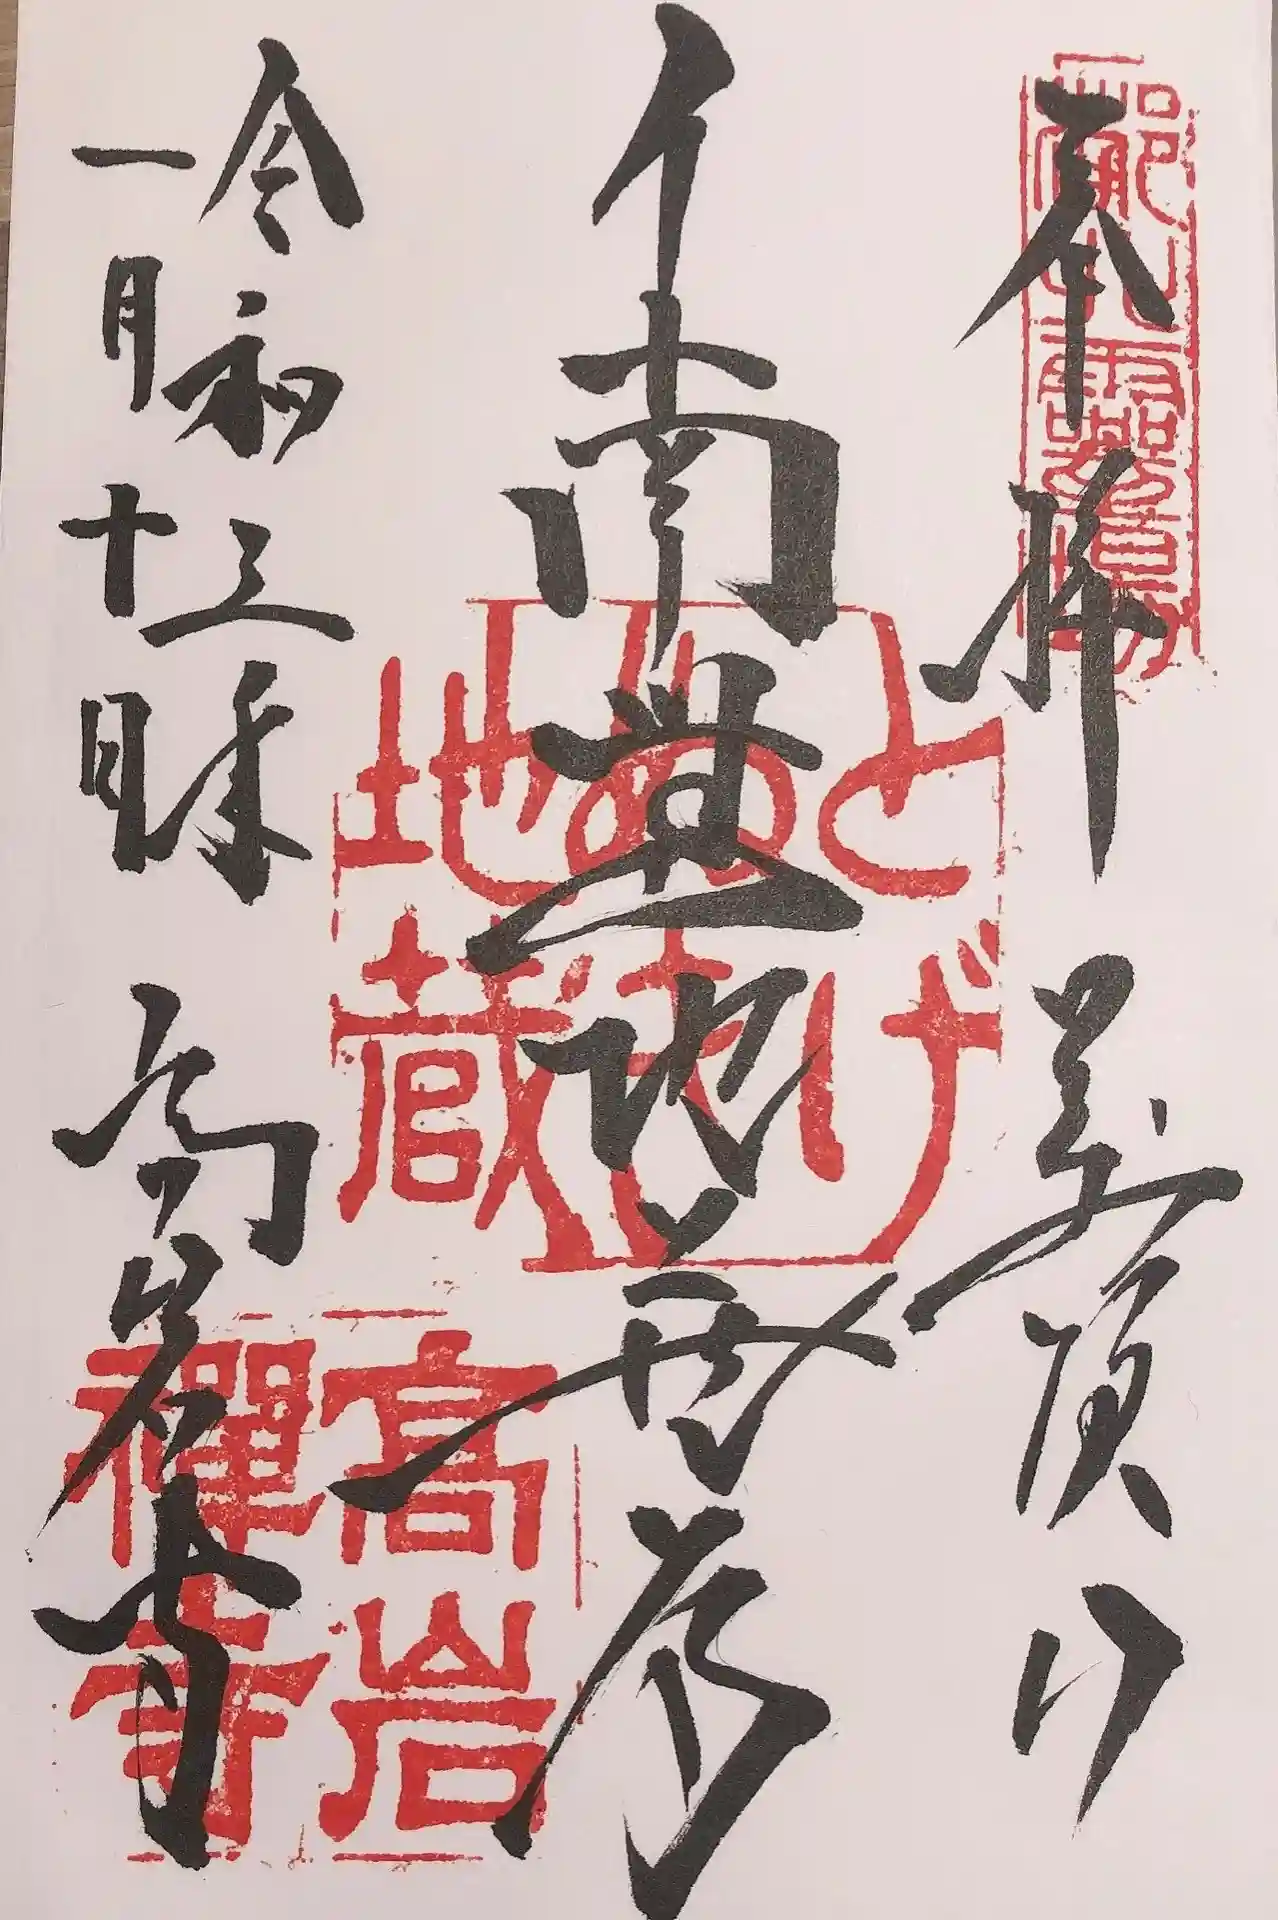 奉拝 萬頂山
南無地蔵尊
令和三年
一月十日 高岩寺
とげ
ぬき
地蔵
高岩
禅寺